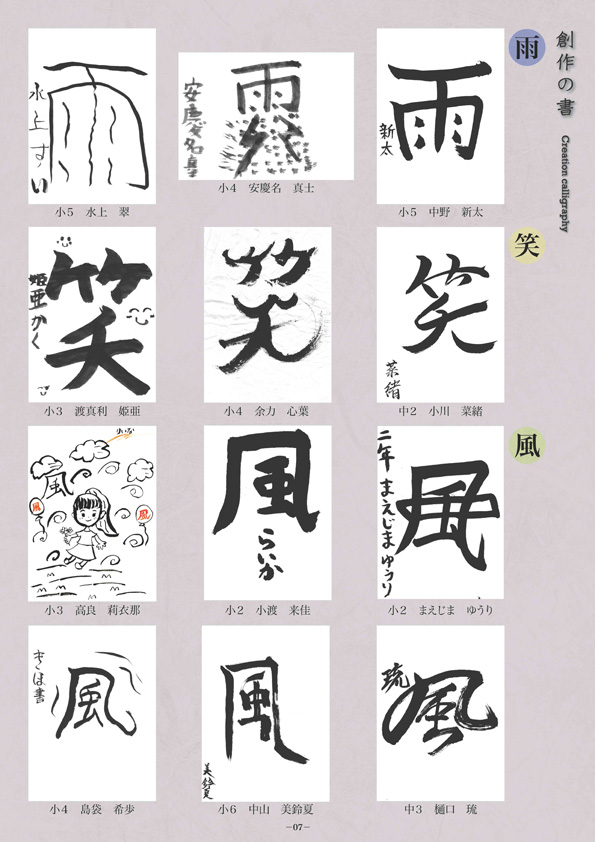 創作の書
Creation calligraphy
雨
雨
新太
小5 中野 新太
雨
安慶名真
小4 安慶名 真士
雨
水上すい
小5 水上 翠
笑
笑
菜緒
中2 小川 菜緒
笑
小4 余力 心葉
笑
姫亜かく
小3 渡真利 姫亜
風
風
二年まえじまゆうり
小2 まえじま ゆうり
風
らいか
小2 小渡 来佳
風
風
風
小3 高良 莉衣那
風
琉
中3 樋口 琉
風
美鈴夏
小6 中山 美鈴夏
風
きほ書
小4 島袋 希歩
−07−